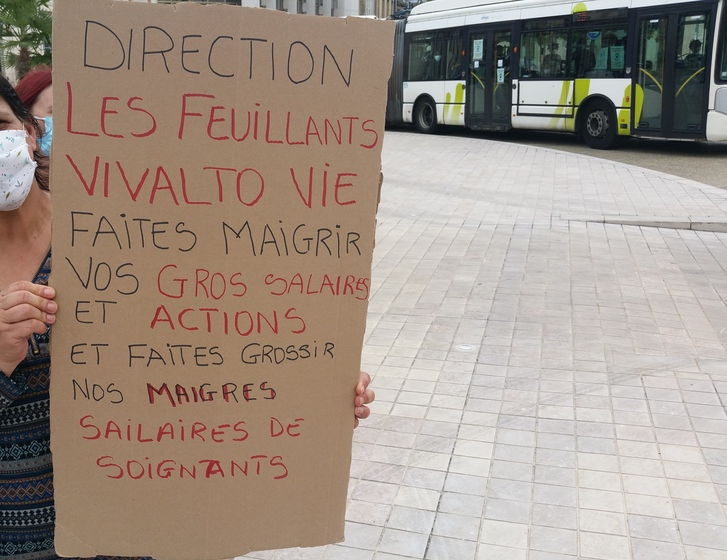 DIRECTION
LES FEUILLANTS
VIVALTO VIE
FAITES MAIGRIR
VOS GROS SALAIRES
ET ACTIONS
ET FAITES GROSSIR
NOS MAIGRES
SAILAIRES DE
SOIGNANTS